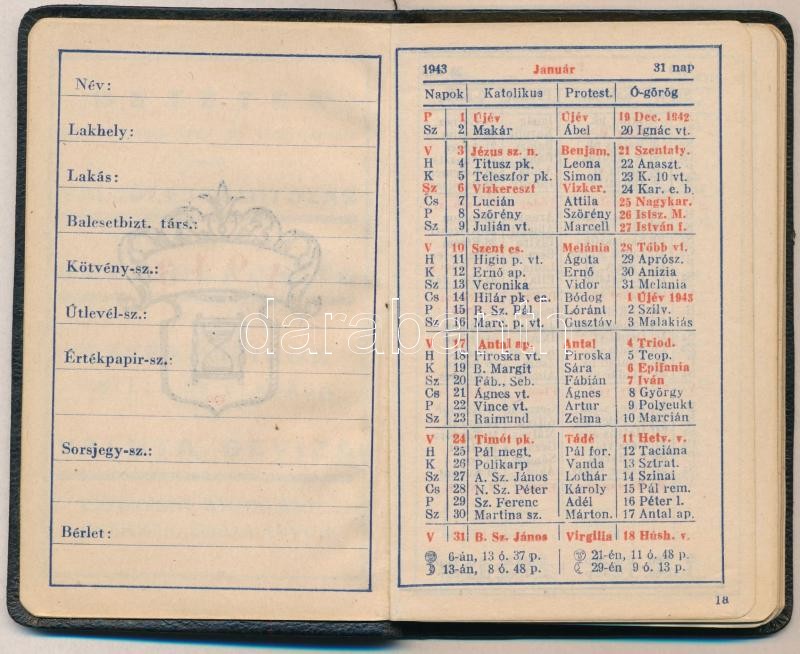 Név:
Lakhely:
Lakás:
Balesetbizt. társ.:
Kötvény-sz.:
Útlevél-sz.:
Értékpapir-sz.:
Sorsjegy-sz.:
Bérlet:
1943 Január 31 nap
Napok Katolikus Protest. Ó-görög
P 1 Újév Újév 19 Dec. 1942
Sz 2 Makár Ábel 20 Ignác vt.
V 3 Jézus sz. n. Benjam. 21 Szentaty.
H 4 Titusz pk. Leona 22 Anaszt.
K 5 Teleszfor pk. Simon 23 K. 10 vt.
Sz 6 Vizkereszt Vizker. 24 Kar. e. b.
Cs 7 Lucián Attila 25 Nagykar.
P 8 Szörény Szörény 26 Istsz. M.
Sz 9 Julián vt. Marcell 27 István f.
V 10 Szent cs. Melánia 28 Több vt.
H 11 Higin p. vt. Ágota 29 Aprósz.
K 12 Ernő ap. Ernő 30 Anizia
Sz 13 Veronika Vidor 31 Melania
Cs 14 Hilár pk. en. Bódog 1 Újév 1943
P 15 R. Sz. Pál Lóránt 2 Szilv.
Sz 16 Marc. p. vt. Gusztáv 3 Malakiás
V 17 Antal ap. Antal 4 Triod.
H 18 Piroska vt. Piroska 5 Teop.
K 19 B. Margit Sára 6 Epifania
Sz 20 Fáb., Seb. Fábián 7 Iván
Cs 21 Ágnes vt. Ágnes 8 György
P 22 Vince vt. Artur 9 Polyeukt
Sz 23 Raimund Zelma 10 Marcián
V 24 Timót pk. Tádé 11 Hetv. v.
H 25 Pál megt. Pál for. 12 Taciána
K 26 Polikarp Vanda 13 Sztrat.
Sz 27 A. Sz. János Lothár 14 Szinai
Cs 28 N. Sz. Péter Károly 15 Pál rem.
P 29 Sz. Ferenc Adél 16 Péter l.
Sz 30 Martina sz. Márton. 17 Antal ap.
V 31 B. Sz. János Virgilia 18 Húsh. v.
6-án, 13 ó. 37 p. 21-én, 11 ó. 48 p.
13-án, 8 ó. 48 p. 29-én 9 ó. 13 p.
18
darabanth